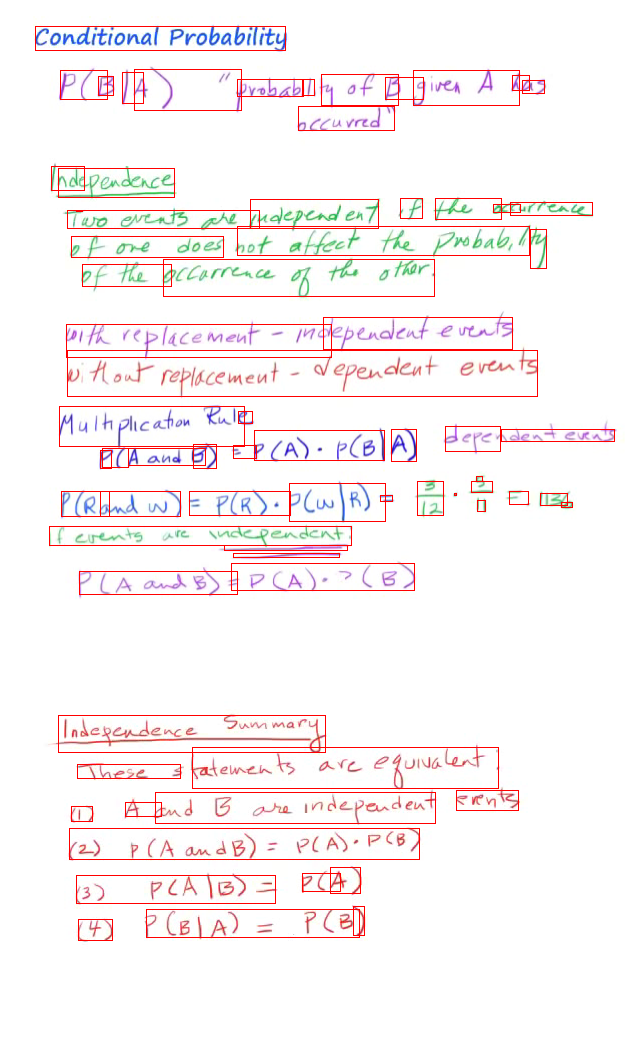 Conditional Probability
P(B|A) "probability of B given A has
occurred"
Independence
Two events are independent if the occurrence
of one does not affect the probability
of the occurrence of the other.
with replacement - independent events
without replacement - dependent events
Multiplication Rule
P(A and B) = P(A) · P(B|A) dependent events
P(R and W) = P(R) · P(W|R) = 3/12 · =
If events are independent:
P(A and B) = P(A) · P(B)
Independence Summary
These statements are equivalent:
(1) A and B are independent events
(2) P(A and B) = P(A) · P(B)
(3) P(A|B) = P(A)
(4) P(B|A) = P(B)